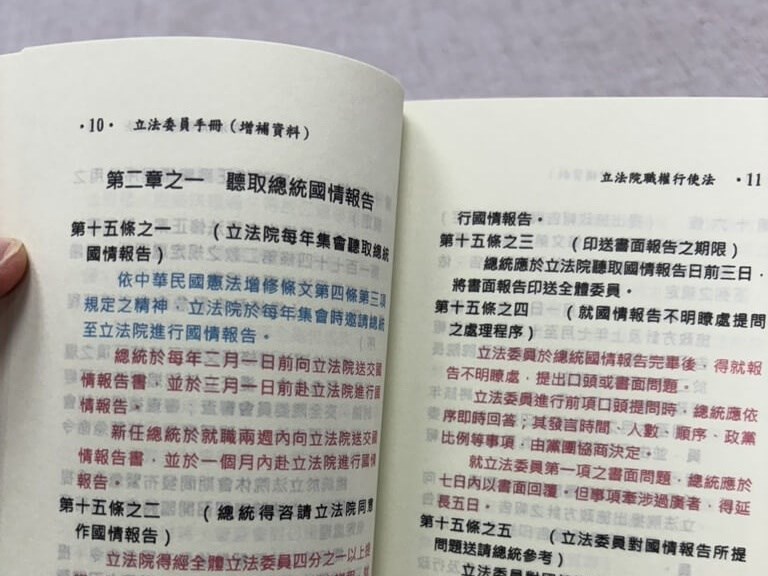 ·10· 立法委員手冊(增補資料)
第二章之一 聽取總統國情報告
第十五條之一 (立法院每年集會聽取總統
國情報告)
依中華民國憲法增修條文第四條第三項
規定之精神,立法院於每年集會時邀請總統
至立法院進行國情報告。
總統於每年二月一日前向立法院送交國
情報告書,並於三月一日前赴立法院進行國
情報告。
新任總統於就職兩週內向立法院送交國
情報告書,並於一個月內赴立法院進行國情
報告。
第十五條之二 (總統得咨請立法院同意
作國情報告)
立法院得經全體立法委員四分之一以上提
立法院職權行使法 ·11
行國情報告。
第十五條之三 (印送書面報告之期限)
總統應於立法院聽取國情報告日前三日,
將書面報告印送全體委員。
第十五條之四 (就國情報告不明瞭處提問
之處理程序)
立法委員於總統國情報告完畢後,得就報
告不明瞭處,提出口頭或書面問題。
立法委員進行前項口頭提問時,總統應依
序即時回答;其發言時間、人數、順序、政黨
比例等事項,由黨團協商決定。
就立法委員第一項之書面問題,總統應於
七日內以書面回覆。但事項牽涉過廣者,得延
長五日。
第十五條之五 (立法委員對國情報告所提
問題送請總統參考)
立法委員對國